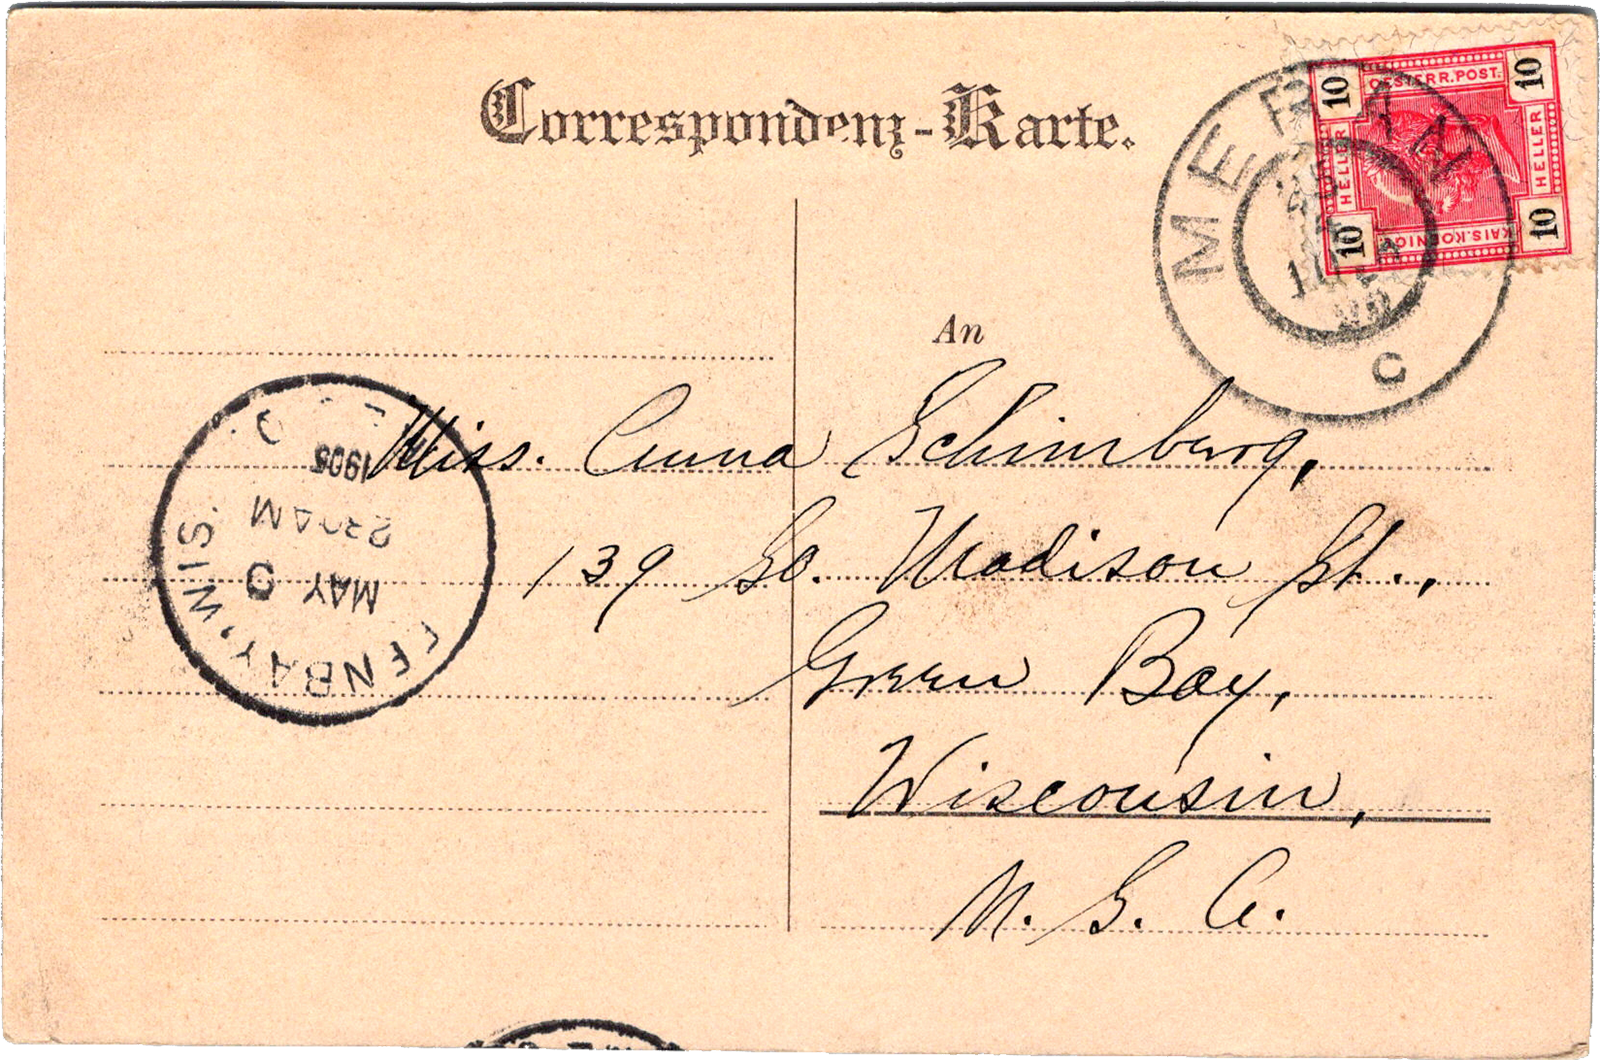 Correspondenz-Karte.
OESTERR. POST.
10 10
HELLER HELLER
10 10
KAIS. KOENIG
MERAN
C
An
Miss. Anna Schimberg,
139 So. Madison St.,
Green Bay,
Wisconsin,
U. S. A.
ENBAY, WIS.
MAY
230AM
1905